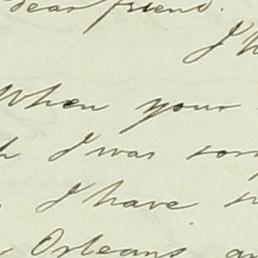 dear friend.
When your
I was
I have
Orleans